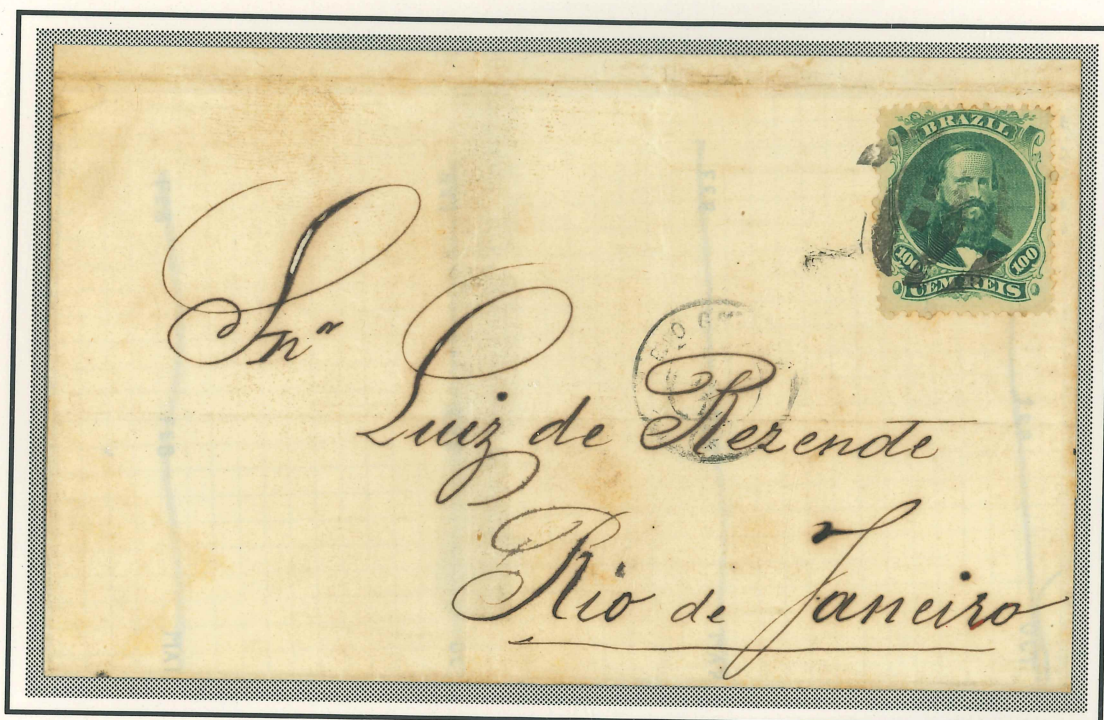 BRAZIL
100 100
CEM REIS
Snr
Luiz de Rezende
Rio de Janeiro